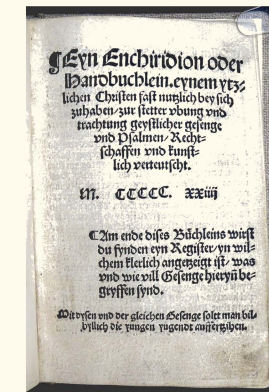 ¶Eyn Enchiridion oder
Handbuchlein. eynem ytz⸗
lichen Christen fast nutzlich bey sich
zuhaben/zur stetter vbung vnd
trachtung geystlicher gesenge
vnd Psalmen/Recht⸗
schaffen vnd kunst⸗
lich verteutscht.
M. CCCCC. XXiiij
¶Am ende dises Büchleins wirst
du fynden eyn Register/yn wil⸗
chem klerlich angetzeigt ist/was
vnd wie vill Gesenge hieryn be⸗
gryffen synd.
Mit dysen vnd der gleichen Gesenge soltt man bil⸗
byllich die yungen yugendt aufferzihen.